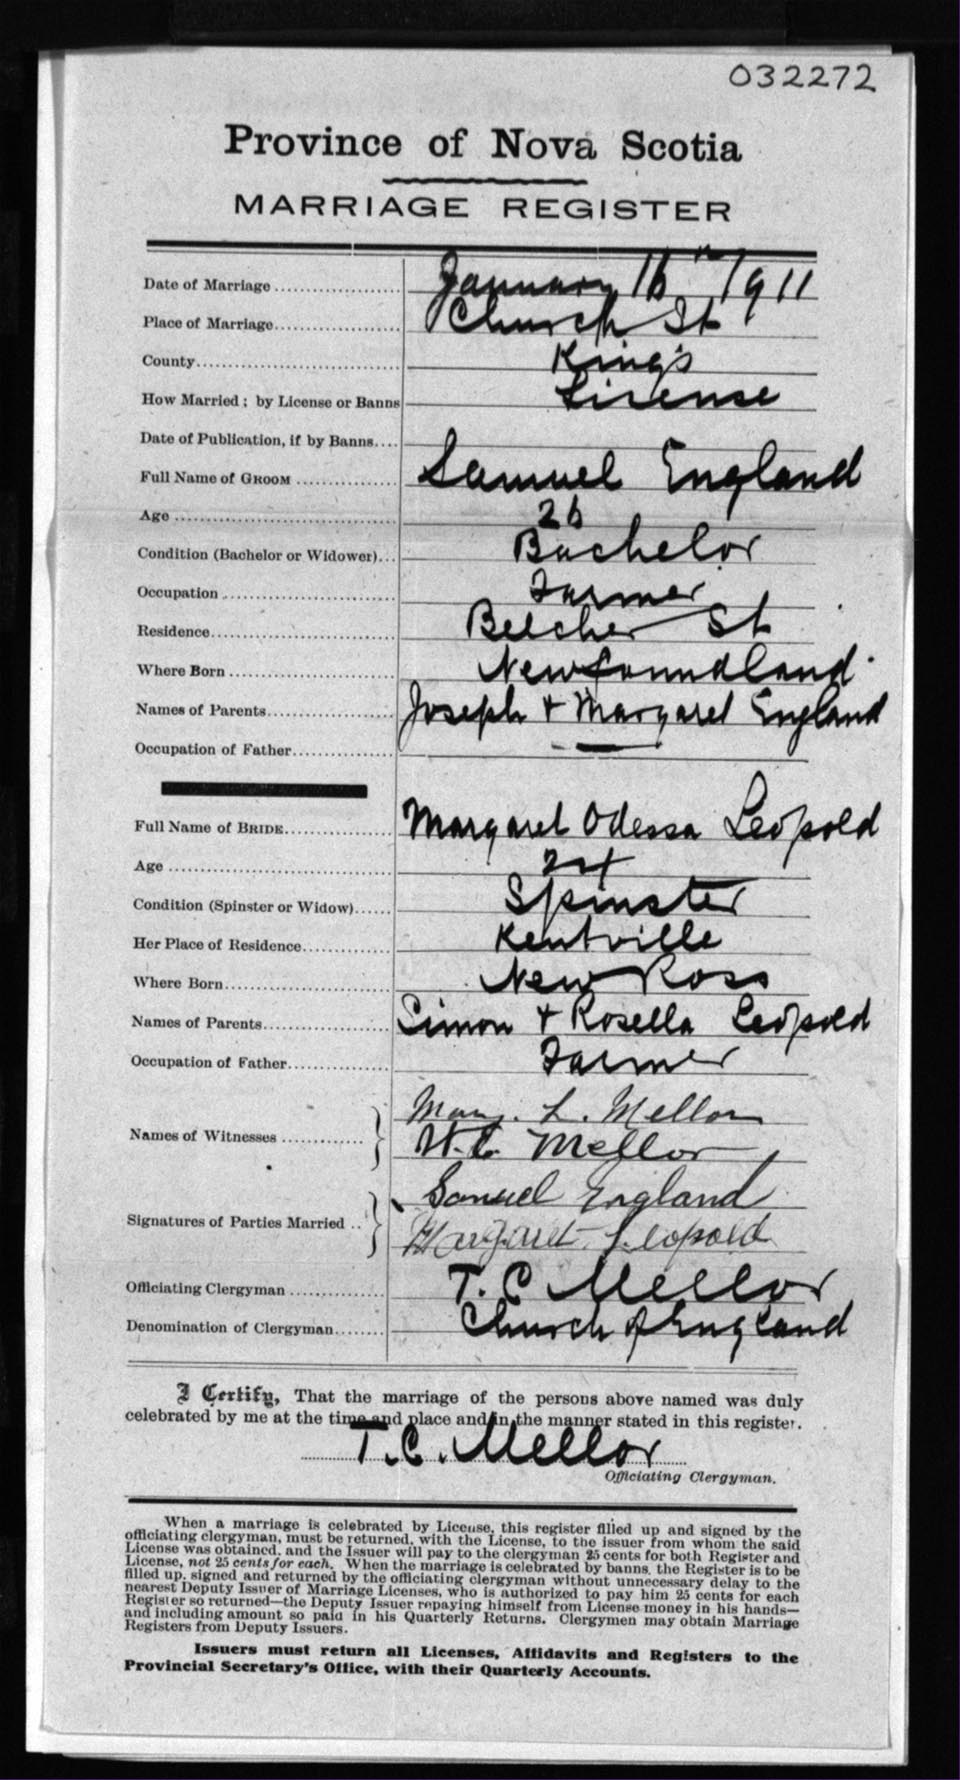 032272
Province of Nova Scotia
MARRIAGE REGISTER
Date of Marriage January 16th 1911
Place of Marriage Church St
County King's
How Married; by License or Banns License
Date of Publication, if by Banns
Full Name of GROOM Samuel England
Age 26
Condition (Bachelor or Widower) Bachelor
Occupation Farmer
Residence Belcher St
Where Born Newfoundland
Names of Parents Joseph + Margaret England
Occupation of Father —
Full Name of BRIDE Margaret Odessa Leopold
Age
Condition (Spinster or Widow) Spinster
Her Place of Residence Kentville
Where Born New Ross
Names of Parents Simon + Rosella Leopold
Occupation of Father Farmer
Names of Witnesses } Mary. L. Mellor
W.C. Mellor
Signatures of Parties Married } Samuel England
Margaret Leopold
Officiating Clergyman T. C Mellor
Denomination of Clergyman Church of England
I Certify, That the marriage of the persons above named was duly
celebrated by me at the time and place and in the manner stated in this register.
T. C. Mellor
Officiating Clergyman.
When a marriage is celebrated by License, this register filled up and signed by the
officiating clergyman, must be returned, with the License, to the issuer from whom the said
License was obtained, and the Issuer will pay to the clergyman 25 cents for both Register and
License, not 25 cents for each. When the marriage is celebrated by banns, the Register is to be
filled up, signed and returned by the officiating clergyman without unnecessary delay to the
nearest Deputy Issuer of Marriage Licenses, who is authorized to pay him 25 cents for each
Register so returned—the Deputy Issuer repaying himself from License money in his hands—
and including amount so paid in his Quarterly Returns. Clergymen may obtain Marriage
Registers from Deputy Issuers.
Issuers must return all Licenses, Affidavits and Registers to the
Provincial Secretary's Office, with their Quarterly Accounts.